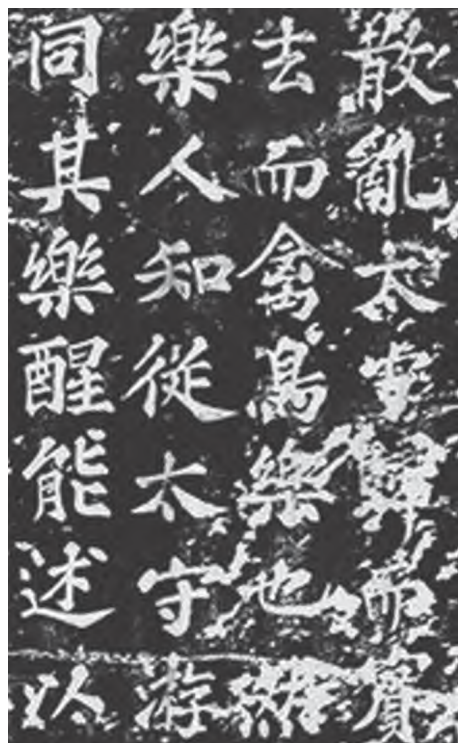 散亂太守歸而賓
去而禽鳥樂也然
樂人知從太守游
同其樂醒能述以